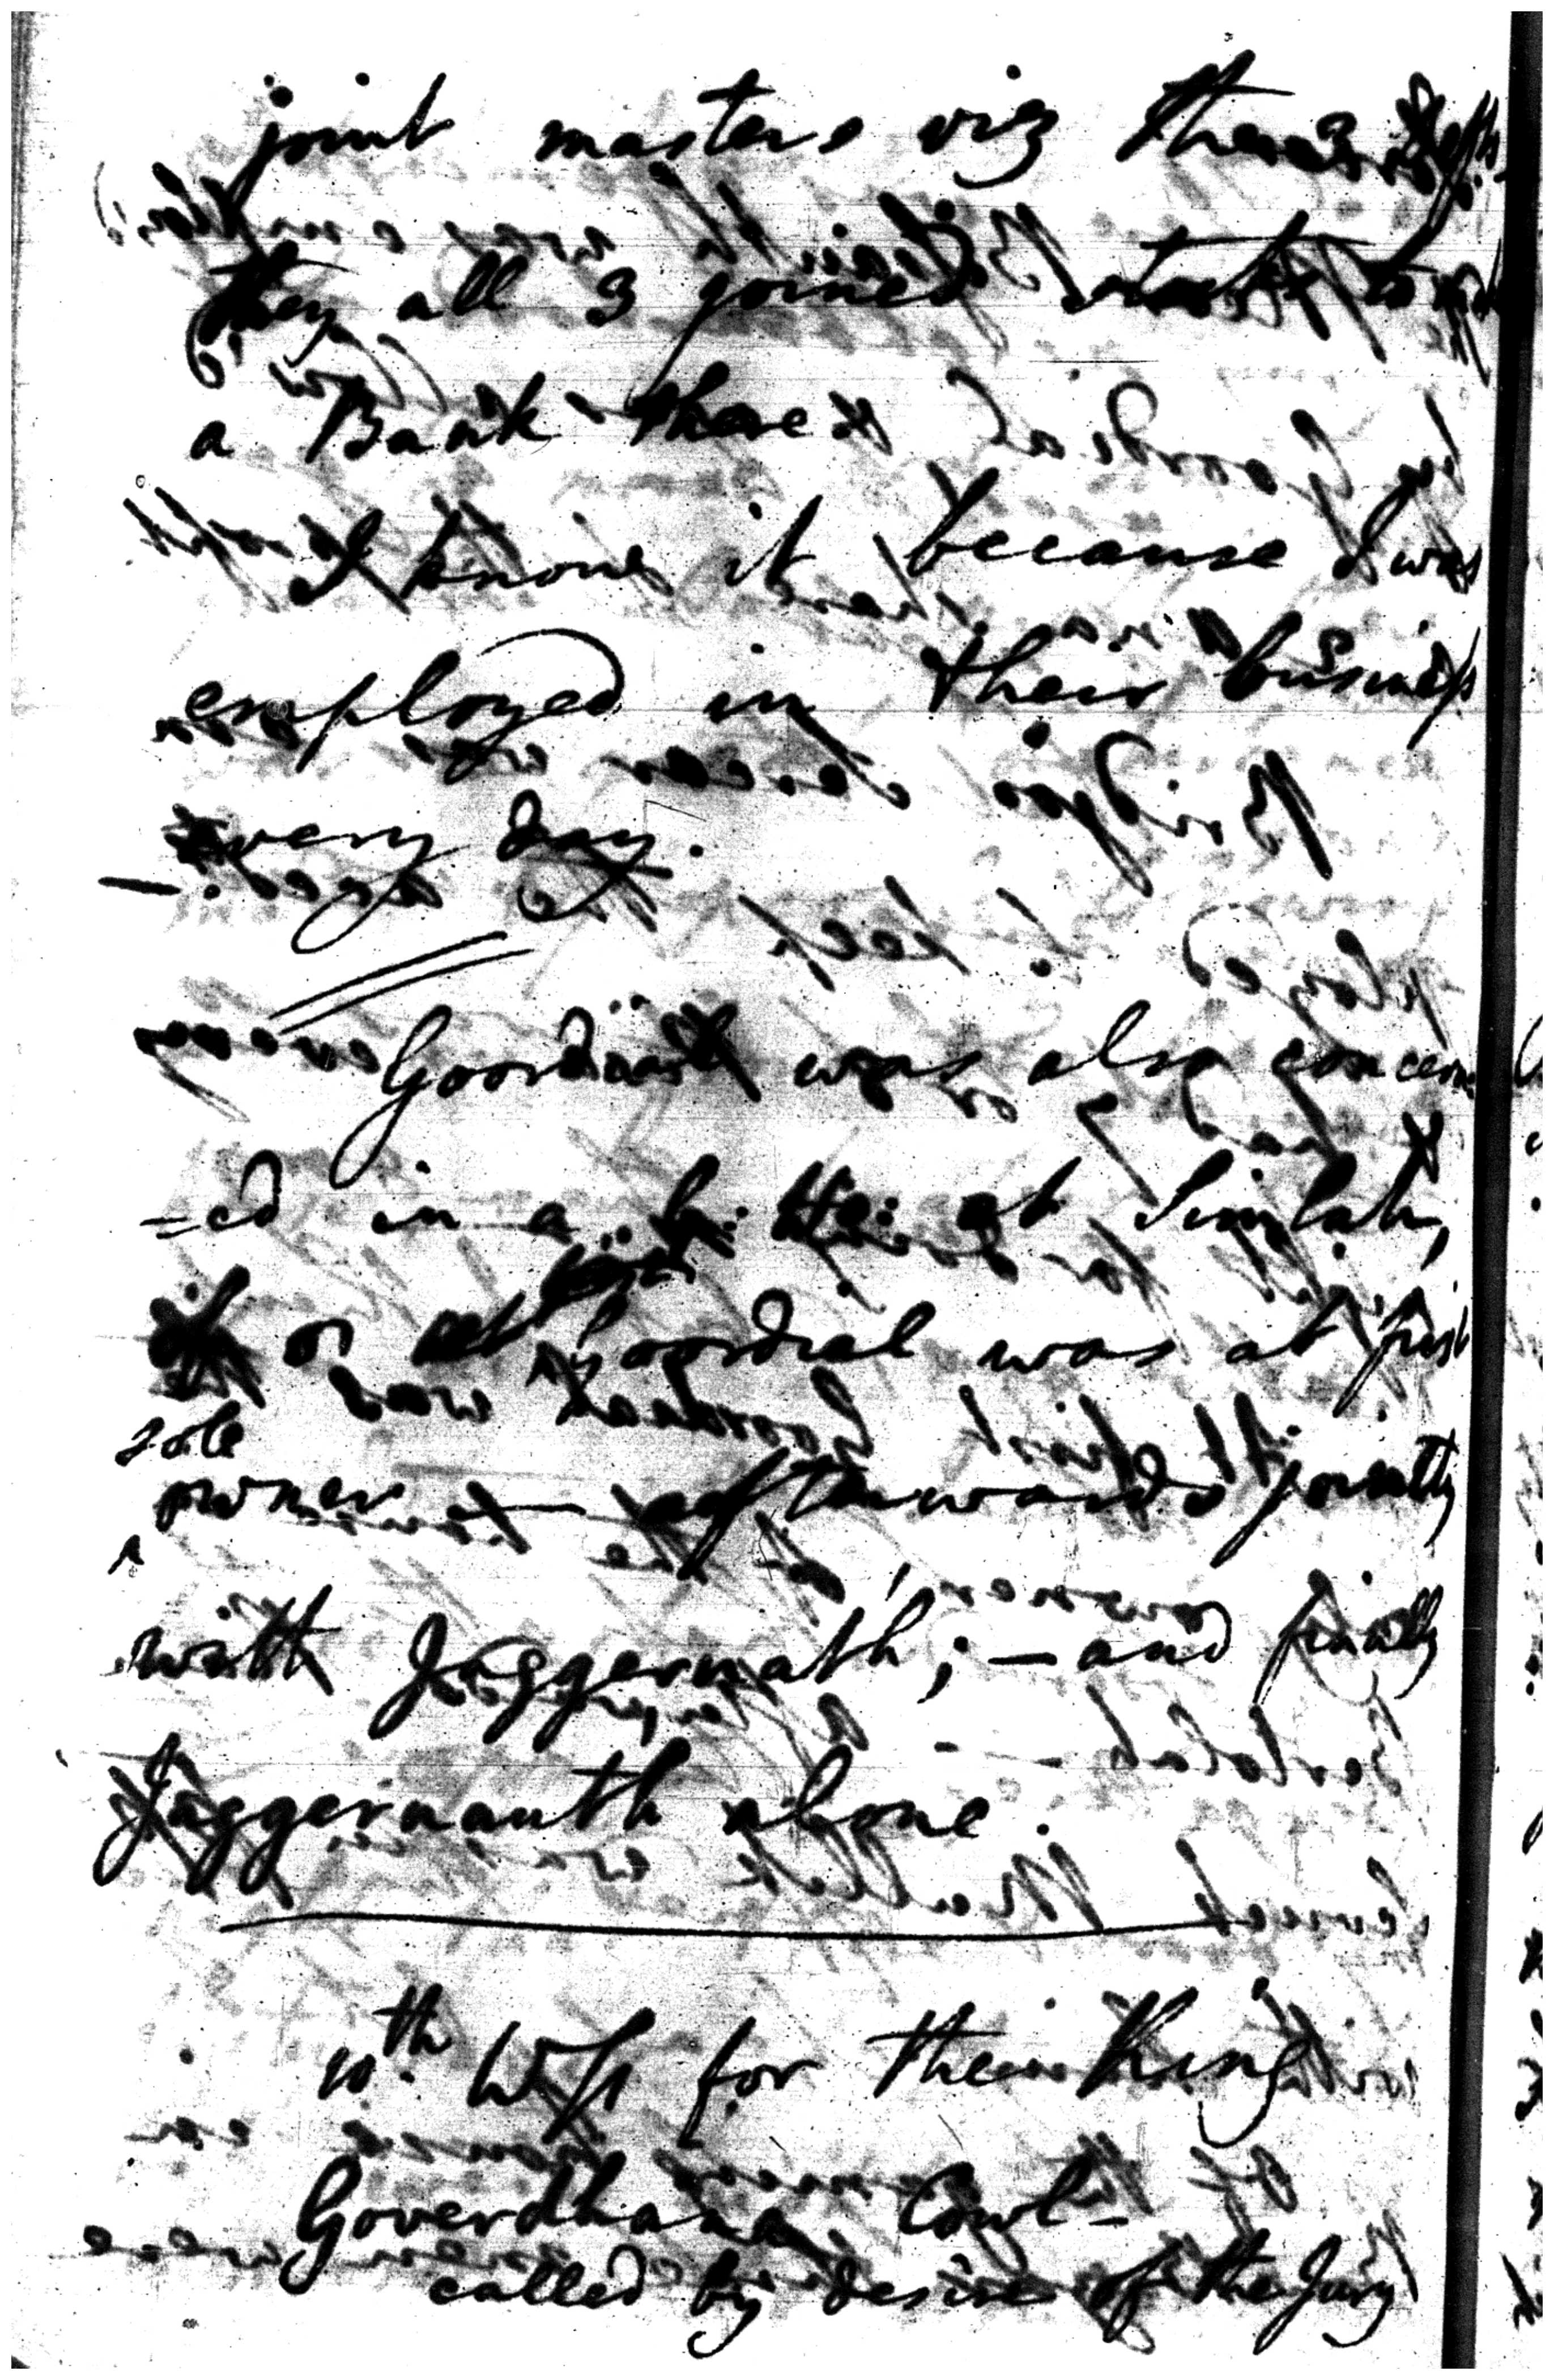 joint masters viz these 3 Defts.
they all 3 joined stock to
a Bank there
I know it because I was
employed in their business
every day.
Goordial was also concern
=ed in a Ho: at Simlah,
Goordial was at first
sole
owner — afterwards jointly
with Jaggernath; — and finally
Jaggernauth alone.
10th. Wss for the King
Goverdhana Cowl-
called by desire of the Jury